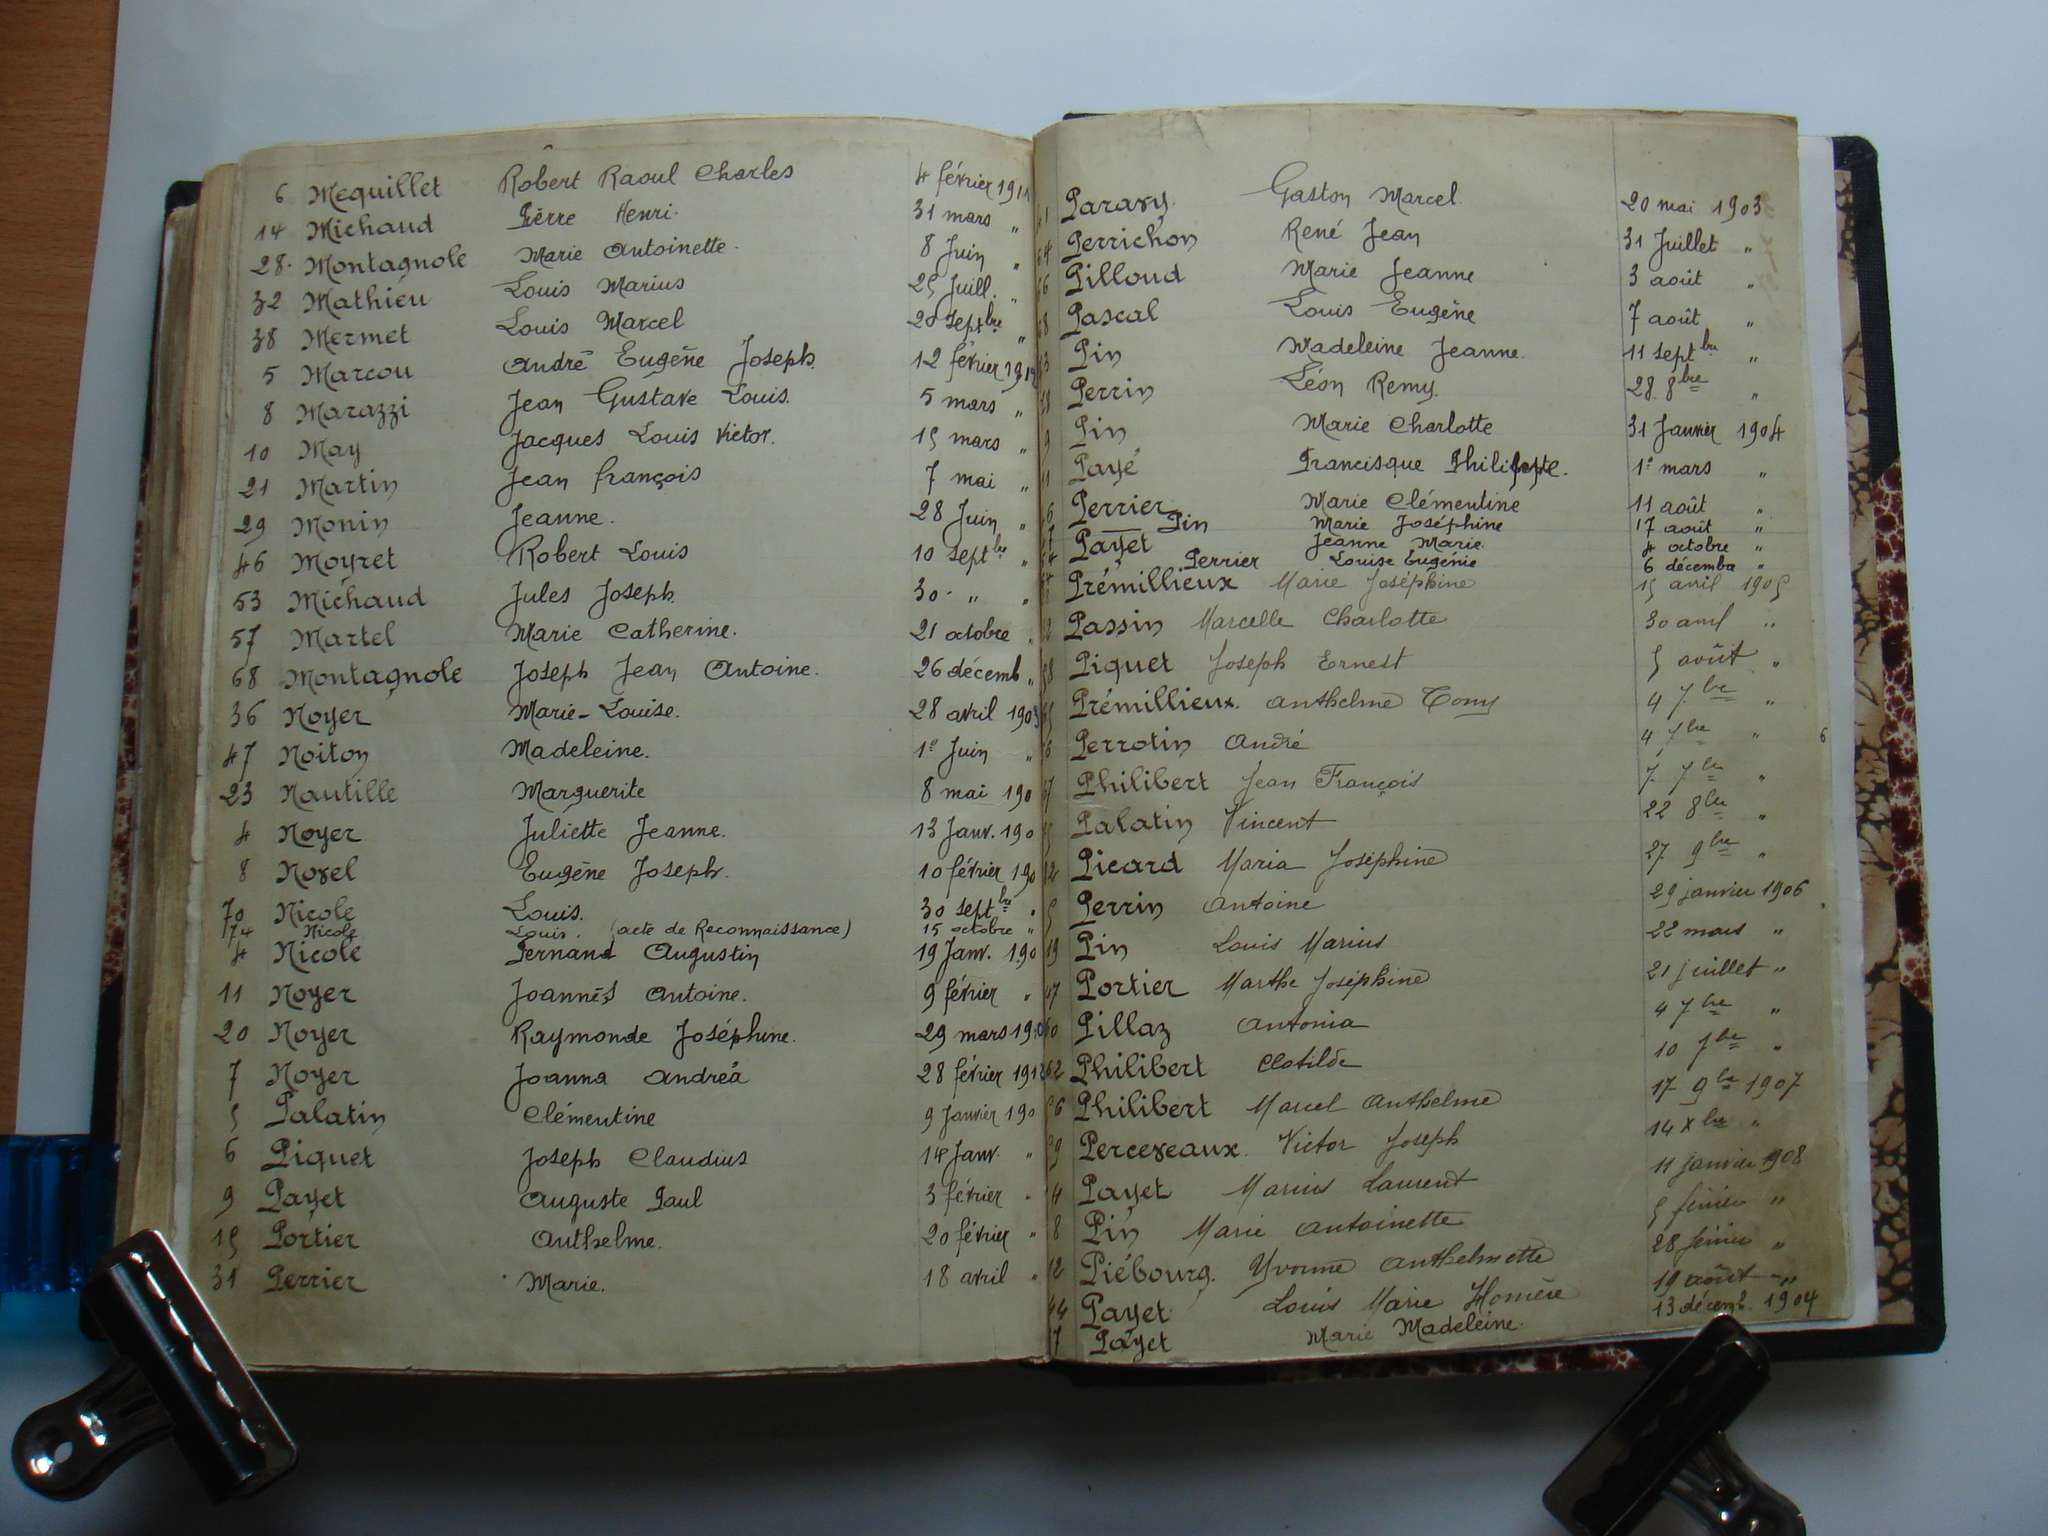 6 Mequillet Robert Raoul Charles 4 février 1911
14 Michaud Pierre Henri. 31 mars "
28. Montagnole Marie Antoinette. 8 Juin "
32 Mathieu Louis Marius 25 Juill. "
38 Mermet Louis Marcel 20 Septbre "
5 Marcou André Eugène Joseph. 12 février 1912
8 Marazzi Jean Gustave Louis. 5 mars "
10 May Jacques Louis Victor. 15 mars "
21 Martin Jean François 7 mai "
29 Monin Jeanne. 28 Juin "
46 Moyret Robert Louis 10 Septbre "
53 Michaud Jules Joseph. 30. " "
57 Martel Marie Catherine. 21 octobre "
68 Montagnole Joseph Jean Antoine. 26 décemb "
36 Noyer Marie-Louise. 28 avril 1903
47 Noiton Madeleine. 1e Juin "
23 Nautille Marguerite 8 mai 190
4 Noyer Juliette Jeanne. 13 Janv. 190
8 Novel Eugène Joseph. 10 février 190
70 Nicole Louis. 30 Septbre "
74 Nicole Louis. (acte de Reconnaissance) 15 octobre "
4 Nicole Fernand Augustin 19 Janv. 190
11 Noyer Joannès Antoine. 9 février "
20 Noyer Raymonde Joséphine. 29 mars 19
7 Noyer Joanna Andréa 28 février 191
5 Palatin Clémentine 9 Janvier 190
6 Piquet Joseph Claudius 14 Janv. "
9 Payet Auguste Paul 3 février "
15 Portier Anthelme. 20 février "
31 Perrier Marie. 18 avril "
Paravy. Gaston Marcel. 20 mai 1903
Perrichon René Jean 31 Juillet "
Pilloud Marie Jeanne 3 août "
Pascal Louis Eugène 7 août "
Pin Madeleine Jeanne. 11 septbre "
Perrin Léon Remy. 28 8bre "
9 Pin Marie Charlotte 31 Janvier 1904
11 Payé Francisque Philippe. 1e mars "
Perrier Marie Clémentine 11 août "
Pin Marie Joséphine 17 août "
Payet Jeanne Marie. 4 octobre "
Perrier Louise Eugénie 6 décembre "
Prémillieux Marie Joséphine 15 avril 1905
Passin Marcelle Charlotte 30 avril "
Piquet Joseph Ernest 5 août "
Prémillieux. Anthelme Tony 4 7bre "
Perrotin André 4 7bre " 6
Philibert Jean François 7 7bre "
Palatin Vincent 22 8bre "
Picard Maria Joséphine 27 9bre "
5 Perrin Antoine 29 janvier 1906
19 Pin Louis Marius 22 mars "
47 Portier Marthe Joséphine 21 juillet "
60 Pillaz Antonia 4 7bre "
62 Philibert Clotilde 10 7bre "
56 Philibert Marcel Anthelme 17 9bre 1907
Perceveaux. Victor Joseph 14 Xbre "
4 Payet Marius Laurent 11 janvier 1908
8 Pin Marie Antoinette 5 février "
12 Piébourg. Yvonne Anthelmette 28 février "
44 Payet Louis Marie Homère 19 août "
7 Payet Marie Madeleine. 13 décemb. 1904